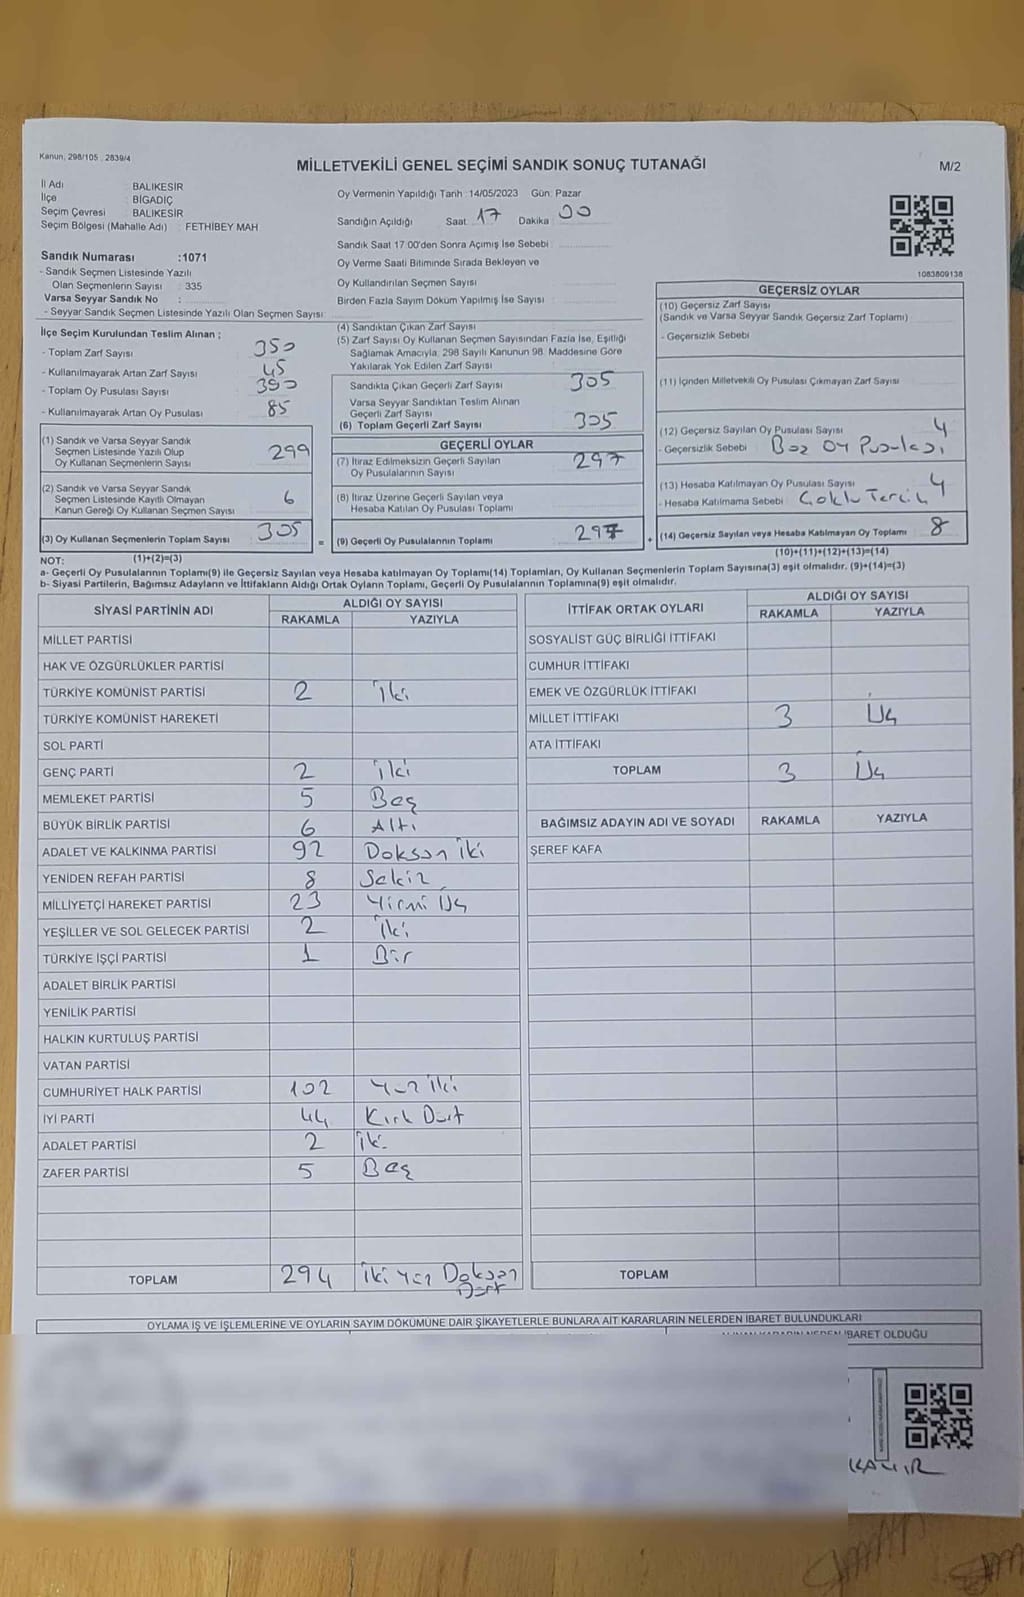 Kanun, 298/105 , 2839/4
MİLLETVEKİLİ GENEL SEÇİMİ SANDIK SONUÇ TUTANAĞI
M/2
İl Adı BALIKESİR
İlçe BİGADİÇ
Seçim Çevresi BALIKESİR
Seçim Bölgesi (Mahalle Adı) : FETHİBEY MAH
Sandık Numarası :1071
- Sandık Seçmen Listesinde Yazılı
Olan Seçmenlerin Sayısı : 335
Varsa Seyyar Sandık No :
- Seyyar Sandık Seçmen Listesinde Yazılı Olan Seçmen Sayısı:
Oy Vermenin Yapıldığı Tarih :14/05/2023 Gün: Pazar
Sandığın Açıldığı Saat 17 Dakika 00
Sandık Saat 17:00'den Sonra Açımış İse Sebebi :
Oy Verme Saati Bitiminde Sırada Bekleyen ve
Oy Kullandırılan Seçmen Sayısı :
Birden Fazla Sayım Döküm Yapılmış İse Sayısı :
1083809138
İlçe Seçim Kurulundan Teslim Alınan ;
- Toplam Zarf Sayısı 350
- Kullanılmayarak Artan Zarf Sayısı 45
- Toplam Oy Pusulası Sayısı 390
- Kullanılmayarak Artan Oy Pusulası 85
(1) Sandık ve Varsa Seyyar Sandık
Seçmen Listesinde Yazılı Olup
Oy Kullanan Seçmenlerin Sayısı 299
(2) Sandık ve Varsa Seyyar Sandık
Seçmen Listesinde Kayıtlı Olmayan
Kanun Gereği Oy Kullanan Seçmen Sayısı 6
(3) Oy Kullanan Seçmenlerin Toplam Sayısı 305
(1)+(2)=(3)
(4) Sandıktan Çıkan Zarf Sayısı :
(5) Zarf Sayısı Oy Kullanan Seçmen Sayısından Fazla İse, Eşitliği
Sağlamak Amacıyla, 298 Sayılı Kanunun 98. Maddesine Göre
Yakılarak Yok Edilen Zarf Sayısı :
Sandıkta Çıkan Geçerli Zarf Sayısı 305
Varsa Seyyar Sandıktan Teslim Alınan
Geçerli Zarf Sayısı
(6) Toplam Geçerli Zarf Sayısı 305
GEÇERLİ OYLAR
(7) İtiraz Edilmeksizin Geçerli Sayılan
Oy Pusulalarının Sayısı 297
(8) İtiraz Üzerine Geçerli Sayılan veya
Hesaba Katılan Oy Pusulası Toplamı
= (9) Geçerli Oy Pusulalarının Toplamı 297 +
GEÇERSİZ OYLAR
(10) Geçersiz Zarf Sayısı
(Sandık ve Varsa Seyyar Sandık Geçersiz Zarf Toplamı)
- Geçersizlik Sebebi
(11) İçinden Milletvekili Oy Pusulası Çıkmayan Zarf Sayısı
(12) Geçersiz Sayılan Oy Pusulası Sayısı 4
- Geçersizlik Sebebi : Boz Oy Pusulası
(13) Hesaba Katılmayan Oy Pusulası Sayısı 4
- Hesaba Katılmama Sebebi : Çoklu Tercih
(14) Geçersiz Sayılan veya Hesaba Katılmayan Oy Toplamı 8
(10)+(11)+(12)+(13)=(14)
NOT:
a- Geçerli Oy Pusulalarının Toplamı(9) ile Geçersiz Sayılan veya Hesaba katılmayan Oy Toplamı(14) Toplamları, Oy Kullanan Seçmenlerin Toplam Sayısına(3) eşit olmalıdır. (9)+(14)=(3)
b- Siyasi Partilerin, Bağımsız Adayların ve İttifakların Aldığı Ortak Oyların Toplamı, Geçerli Oy Pusulalarının Toplamına(9) eşit olmalıdır.
SİYASİ PARTİNİN ADI ALDIĞI OY SAYISI
RAKAMLA YAZIYLA
MİLLET PARTİSİ
HAK VE ÖZGÜRLÜKLER PARTİSİ
TÜRKİYE KOMÜNİST PARTİSİ 2 İki
TÜRKİYE KOMÜNİST HAREKETİ
SOL PARTİ
GENÇ PARTİ 2 İki
MEMLEKET PARTİSİ 5 Beş
BÜYÜK BİRLİK PARTİSİ 6 Altı
ADALET VE KALKINMA PARTİSİ 92 Doksan İki
YENİDEN REFAH PARTİSİ 8 Sekiz
MİLLİYETÇİ HAREKET PARTİSİ 23 Yirmi Üç
YEŞİLLER VE SOL GELECEK PARTİSİ 2 İki
TÜRKİYE İŞÇİ PARTİSİ 1 Bir
ADALET BİRLİK PARTİSİ
YENİLİK PARTİSİ
HALKIN KURTULUŞ PARTİSİ
VATAN PARTİSİ
CUMHURİYET HALK PARTİSİ 102 Yüz İki
İYİ PARTİ 44 Kırk Dört
ADALET PARTİSİ 2 İki
ZAFER PARTİSİ 5 Beş
TOPLAM 294 İki Yüz Doksan
Dört
İTTİFAK ORTAK OYLARI ALDIĞI OY SAYISI
RAKAMLA YAZIYLA
SOSYALİST GÜÇ BİRLİĞİ İTTİFAKI
CUMHUR İTTİFAKI
EMEK VE ÖZGÜRLÜK İTTİFAKI
MİLLET İTTİFAKI 3 Üç
ATA İTTİFAKI
TOPLAM 3 Üç
BAĞIMSIZ ADAYIN ADI VE SOYADI RAKAMLA YAZIYLA
ŞEREF KAFA
TOPLAM
OYLAMA İŞ VE İŞLEMLERİNE VE OYLARIN SAYIM DÖKÜMÜNE DAİR ŞİKAYETLERLE BUNLARA AİT KARARLARIN NELERDEN İBARET BULUNDUKLARI
İBARET OLDUĞU